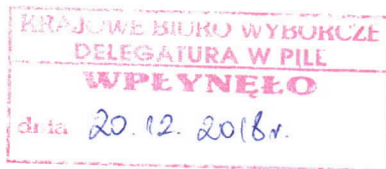 KRAJOWE BIURO WYBORCZE
DELEGATURA W PILE
WPŁYNĘŁO
data 20.12.2018r.